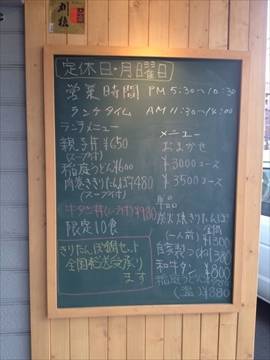 定休日・月曜日
営業時間 PM 5:30~10:30
ランチタイム AM 11:30~14:00
ランチメニュー
親子丼 ¥650
(スープ付)
稲庭うどん ¥600
肉巻ききりたんぽ ¥480
(スープ付)
牛タン丼(スープ付) ¥980
限定10食
きりたんぽ鍋セット
全国発送受承り
ます
メニュー
おまかせ
¥3000コース
¥3500コース
単品
きりたんぽ
(一人前) ¥1300
自家製つくね ¥380
和牛タン ¥800
稲庭うどん
(温) ¥880